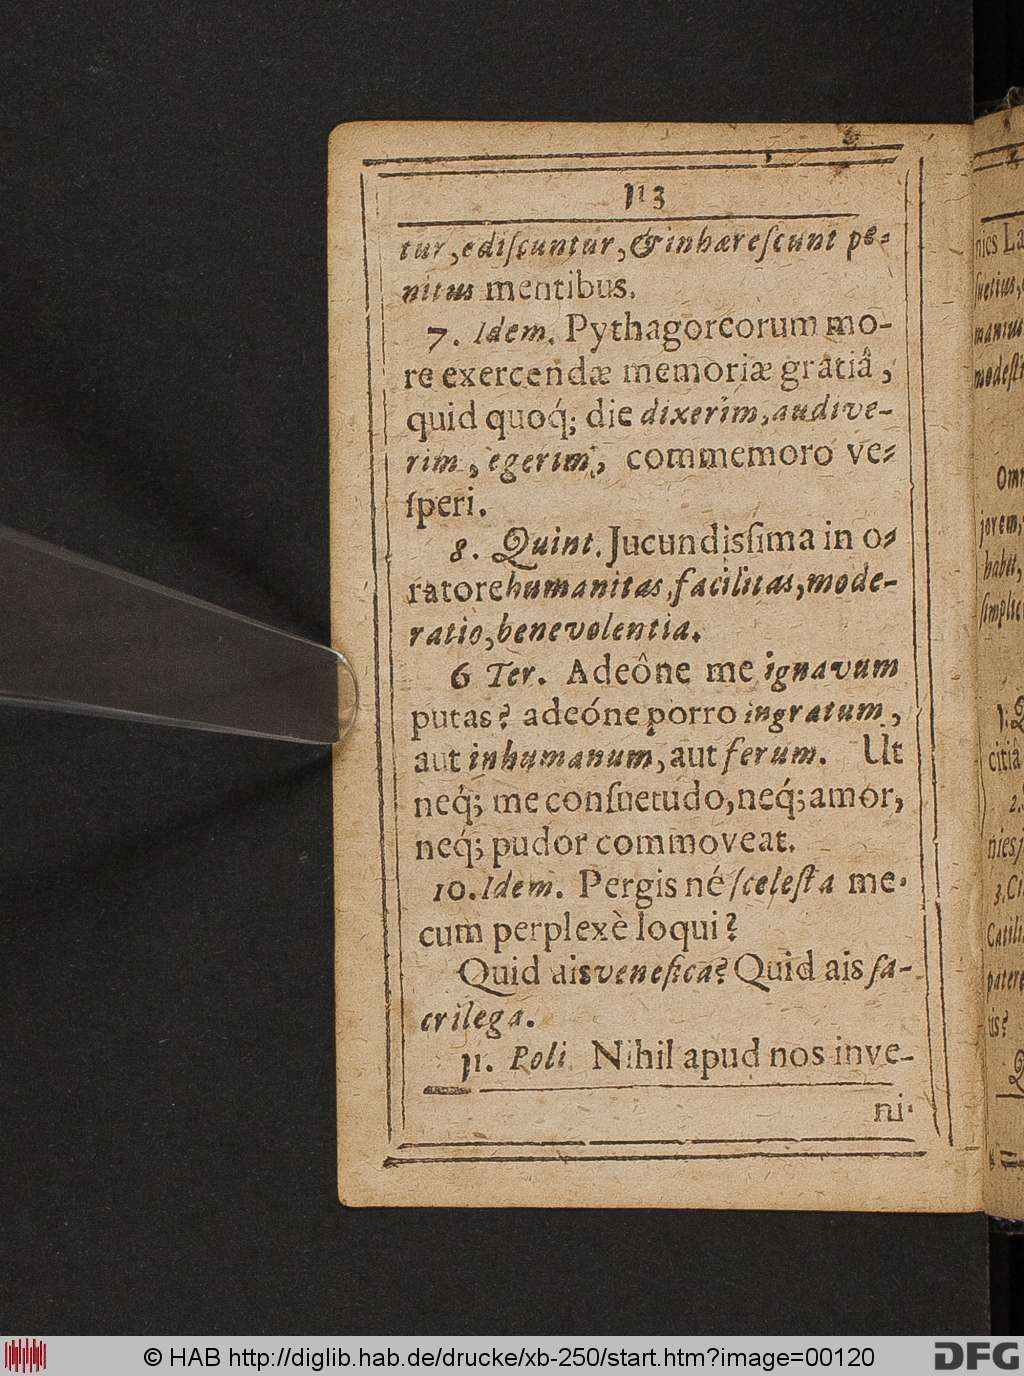 113
tur, ediſcuntur, & inhæreſcunt pe-
nitus mentibus.
7. Idem. Pythagoreorum mo-
re exercendæ memoriæ gratiâ,
quid quoq́; die dixerim, audive-
rim, egerim, commemoro ve-
ſperi.
8. Quint. Jucundisſima in o-
ratore humanitas, facilitas, mode-
ratio, benevolentia.
6 Ter. Adeône me ignavum
putas? adeóne porro ingratum,
aut inhumanum, aut ferum. Ut
neq́; me conſuetudo, neq́; amor,
neq́; pudor commoveat.
10. Idem. Pergis né ſceleſta me-
cum perplexè loqui?
Quid ais venefica? Quid ais ſa-
crilega.
11. Poli Nihil apud nos inve-
ni-
© HAB http://diglib.hab.de/drucke/xb-250/start.htm?image=00120
DFG